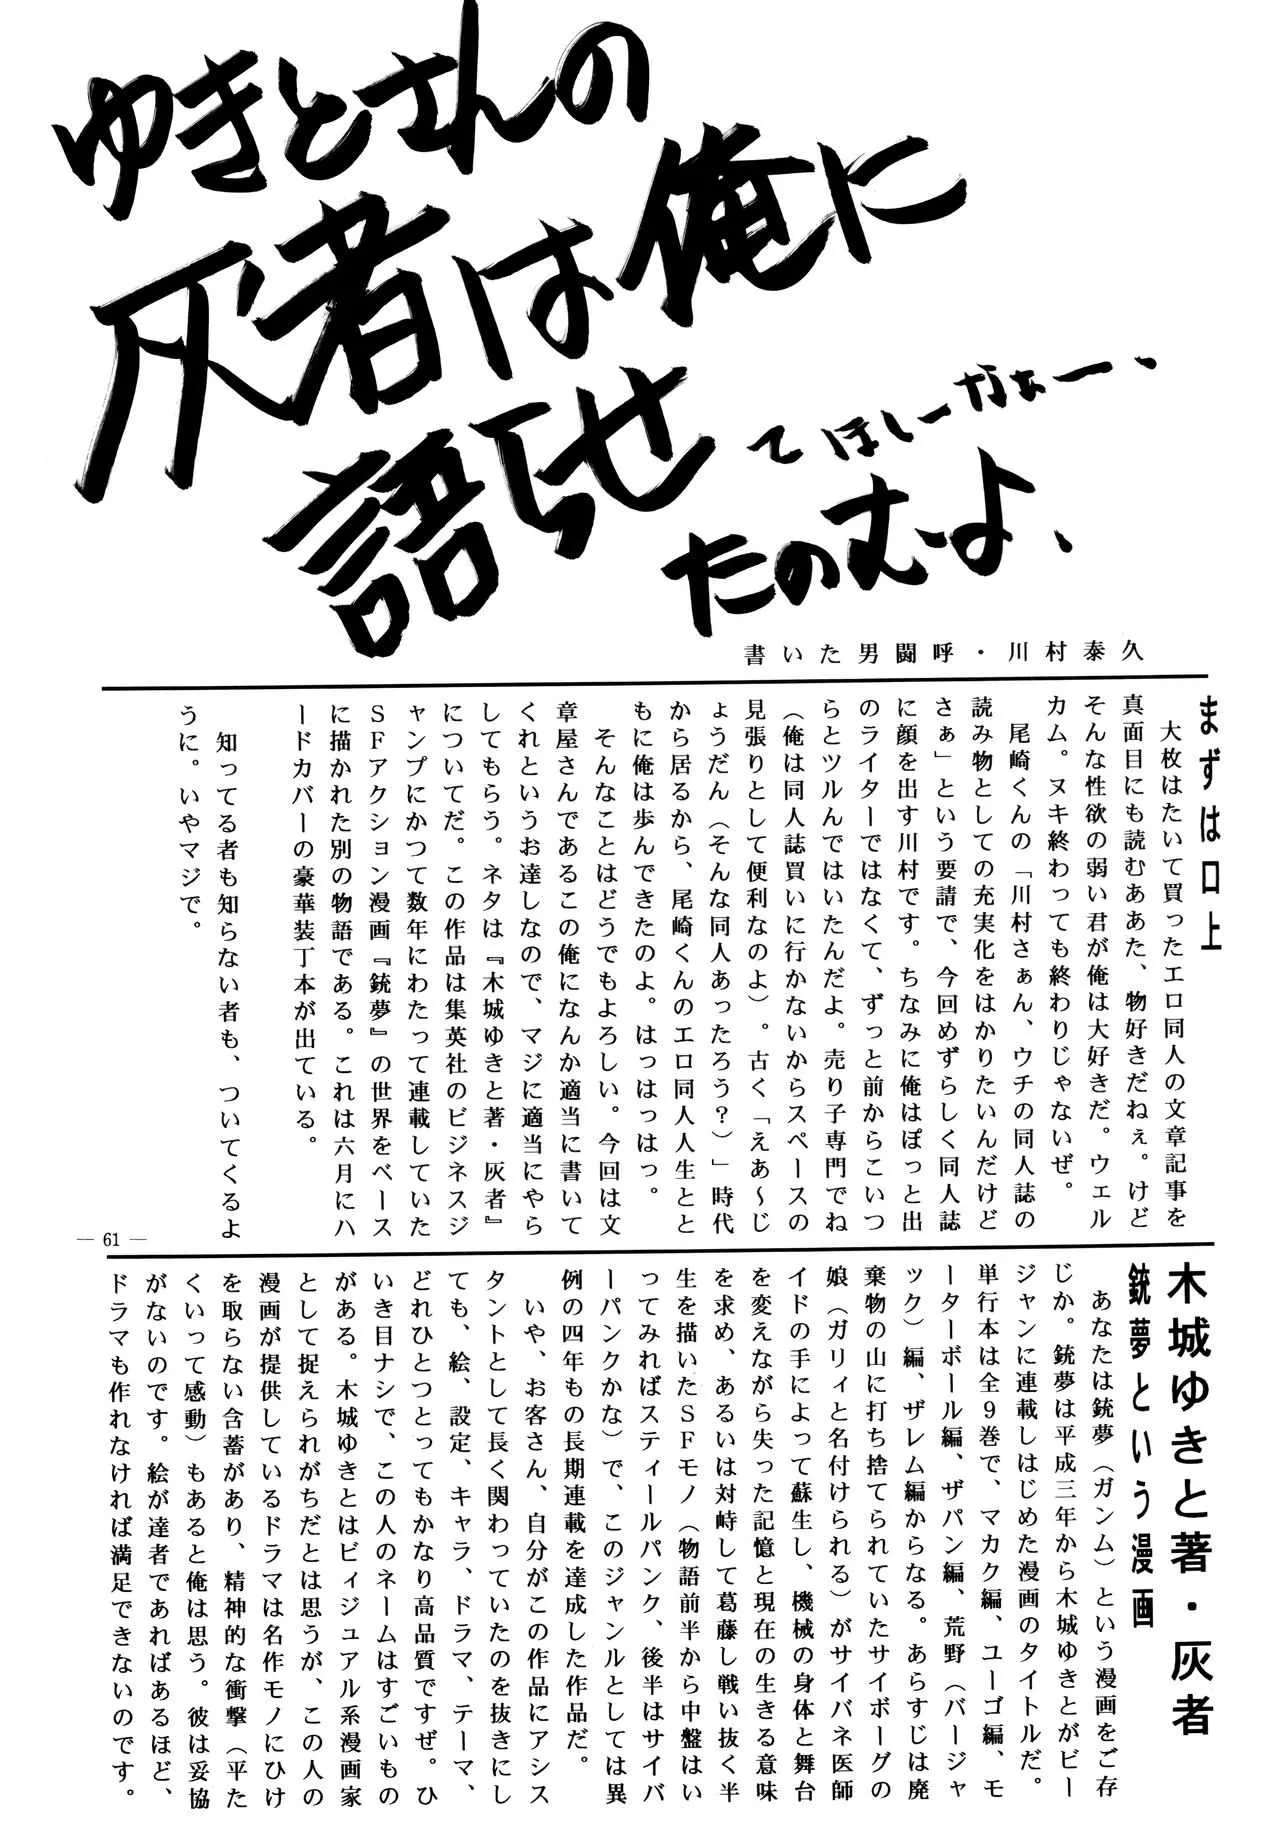 ゆきとさんの
灰者は俺に
語らせ
てほしーなぁー、
たのむーよ、
書いた男闘呼・川村泰久
まずは口上
　大枚はたいて買ったエロ同人の文章記事を
真面目にも読むああた、物好きだねぇ。けど
そんな性欲の弱い君が俺は大好きだ。ウェル
カム。ヌキ終わっても終わりじゃないぜ。
　尾崎くんの「川村さぁん、ウチの同人誌の
読み物としての充実化をはかりたいんだけど
さぁ」という要請で、今回めずらしく同人誌
に顔を出す川村です。ちなみに俺はぽっと出
のライターではなくて、ずっと前からこいつ
らとツルんではいたんだよ。売り子専門でね
（俺は同人誌買いに行かないからスペースの
見張りとして便利なのよ）。古く「えあ～じ
ょうだん（そんな同人あったろう？）」時代
から居るから、尾崎くんのエロ同人人生とと
もに俺は歩んできたのよ。はっはっはっ。
　そんなことはどうでもよろしい。今回は文
章屋さんであるこの俺になんか適当に書いて
くれというお達しなので、マジに適当にやら
してもらう。ネタは『木城ゆきと著・灰者』
についてだ。この作品は集英社のビジネスジ
ャンプにかつて数年にわたって連載していた
ＳＦアクション漫画『銃夢』の世界をベース
に描かれた別の物語である。これは六月にハ
ードカバーの豪華装丁本が出ている。
　知ってる者も知らない者も、ついてくるよ
うに。いやマジで。
― 61 ―
木城ゆきと著・灰者
銃夢という漫画
　あなたは銃夢（ガンム）という漫画をご存
じか。銃夢は平成三年から木城ゆきとがビー
ジャンに連載しはじめた漫画のタイトルだ。
単行本は全９巻で、マカク編、ユーゴ編、モ
ーターボール編、ザパン編、荒野（バージャ
ック）編、ザレム編からなる。あらすじは廃
棄物の山に打ち捨てられていたサイボーグの
娘（ガリィと名付けられる）がサイバネ医師
イドの手によって蘇生し、機械の身体と舞台
を変えながら失った記憶と現在の生きる意味
を求め、あるいは対峙して葛藤し戦い抜く半
生を描いたＳＦモノ（物語前半から中盤はい
ってみればスティールパンク、後半はサイバ
ーパンクかな）で、このジャンルとしては異
例の四年もの長期連載を達成した作品だ。
　いや、お客さん、自分がこの作品にアシス
タントとして長く関わっていたのを抜きにし
ても、絵、設定、キャラ、ドラマ、テーマ、
どれひとつとってもかなり高品質ですぜ。ひ
いき目ナシで、この人のネームはすごいもの
がある。木城ゆきとはビィジュアル系漫画家
として捉えられがちだとは思うが、この人の
漫画が提供しているドラマは名作モノにひけ
を取らない含蓄があり、精神的な衝撃（平た
くいって感動）もあると俺は思う。彼は妥協
がないのです。絵が達者であればあるほど、
ドラマも作れなければ満足できないのです。